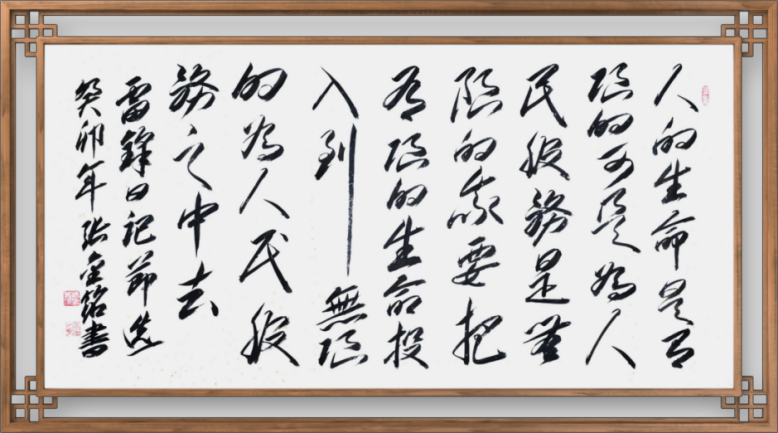 人的生命是有
限的可是為人
民服務是無
限的我要把
有限的生命投
入到無限
的為人民服
務之中去
雷鋒日記節選
癸卯年張金銘書